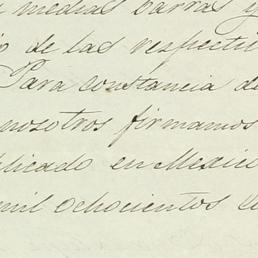 medias barras y
de las respecti
Para constancia de
nosotros firmamos
plicado en Mexico
mil ochocientos